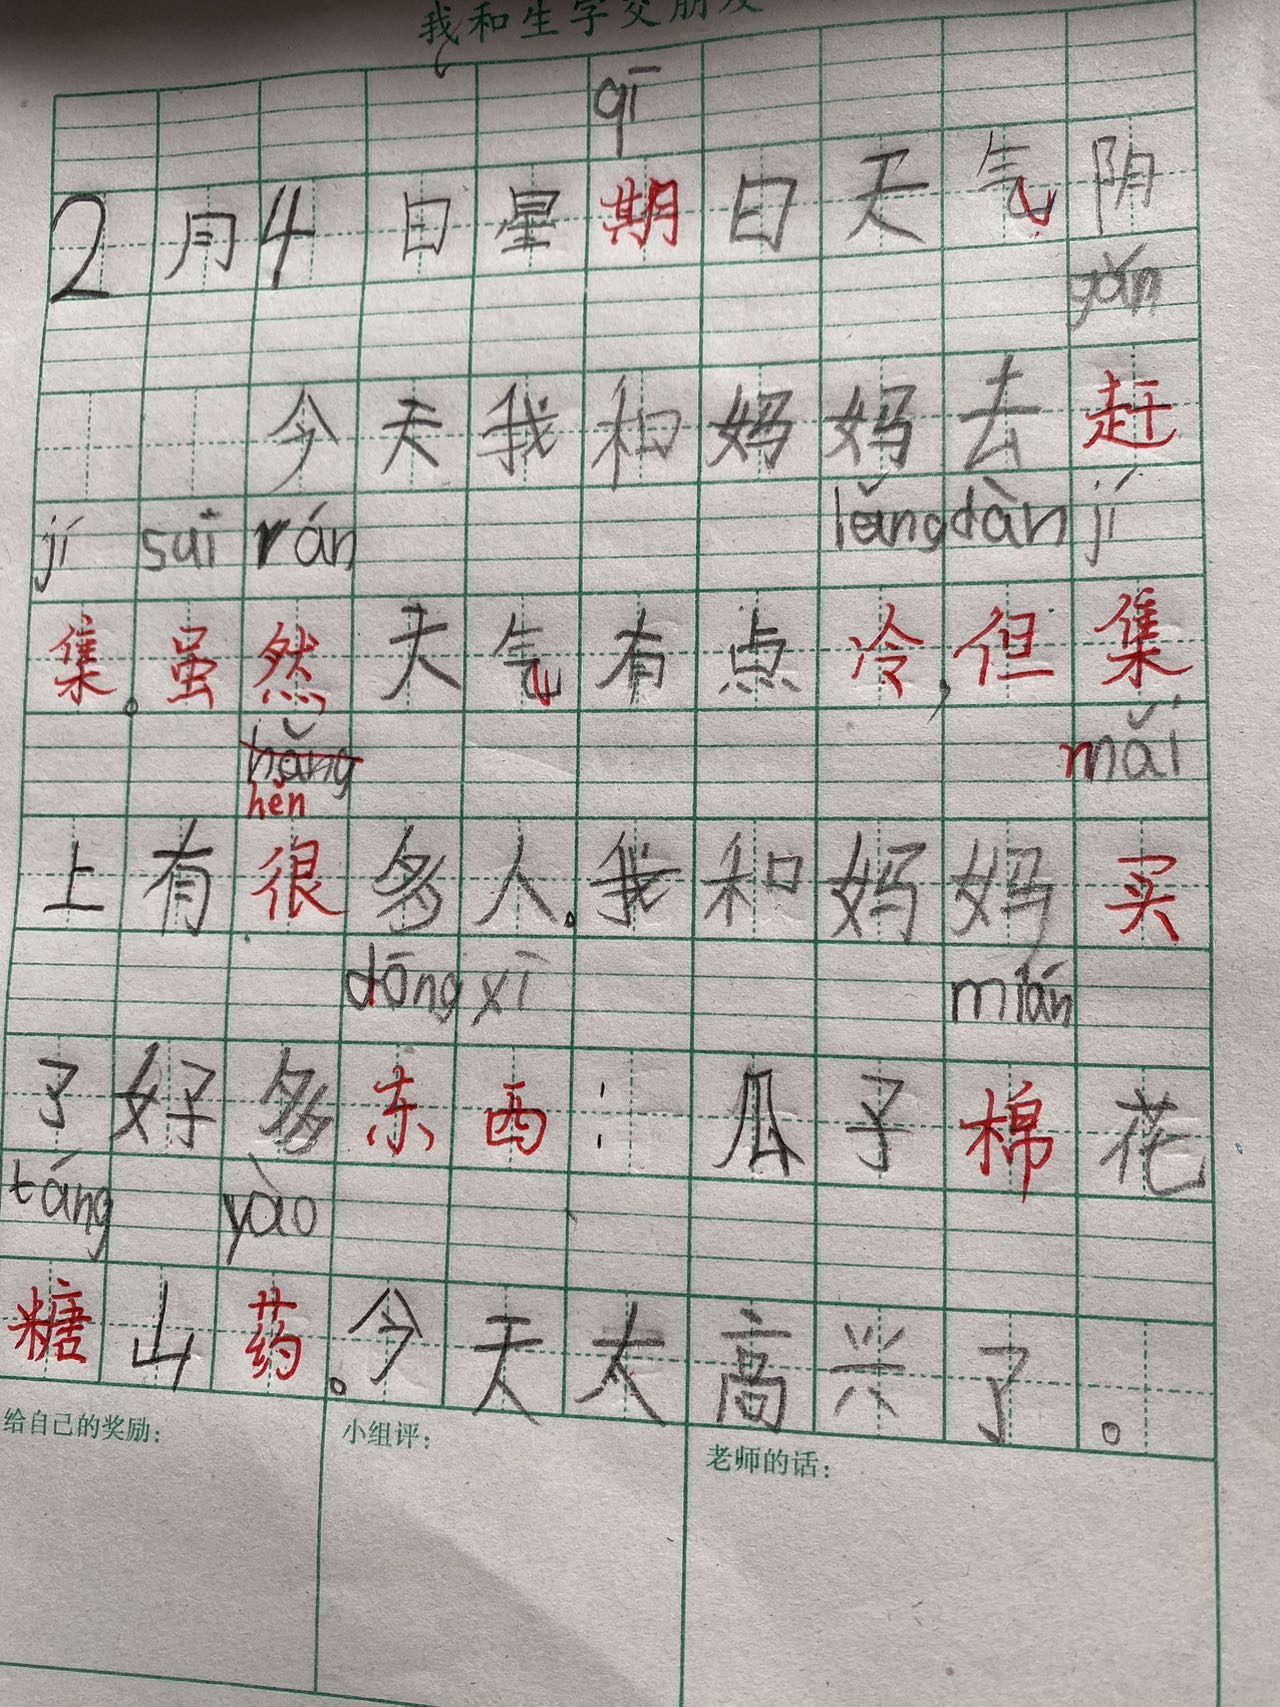 我和生字交朋友
qī
2月4日星期日天气阴
gǎn
今天我和妈妈去赶
jí suī rán lěng dàn jí
集。虽然天气有点冷,但集
hǎng mǎi
hěn
上有很多人。我和妈妈买
dōng xī mián
了好多东西:瓜子棉花
táng yào
糖山药。今天太高兴了。
给自己的奖励: 小组评: 老师的话: